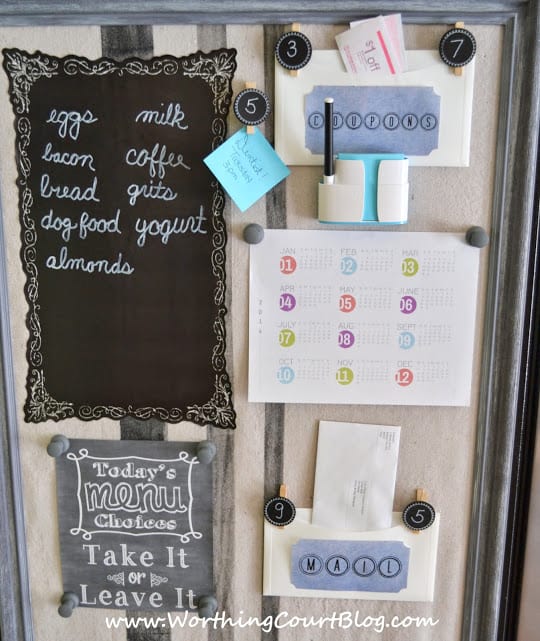 eggs milk
bacon coffee
bread grits
dog food yogurt
almonds
3
7
$1 off
COUPONS
5
Dentist!
Tuesday
3pm
2014
JAN FEB MAR
01 02 03
APR MAY JUNE
04 05 06
JULY AUG SEPT
07 08 09
OCT NOV DEC
10 11 12
Today's
menu
Choices
Take It
or
Leave It
9
5
MAIL
www.WorthingCourtBlog.com